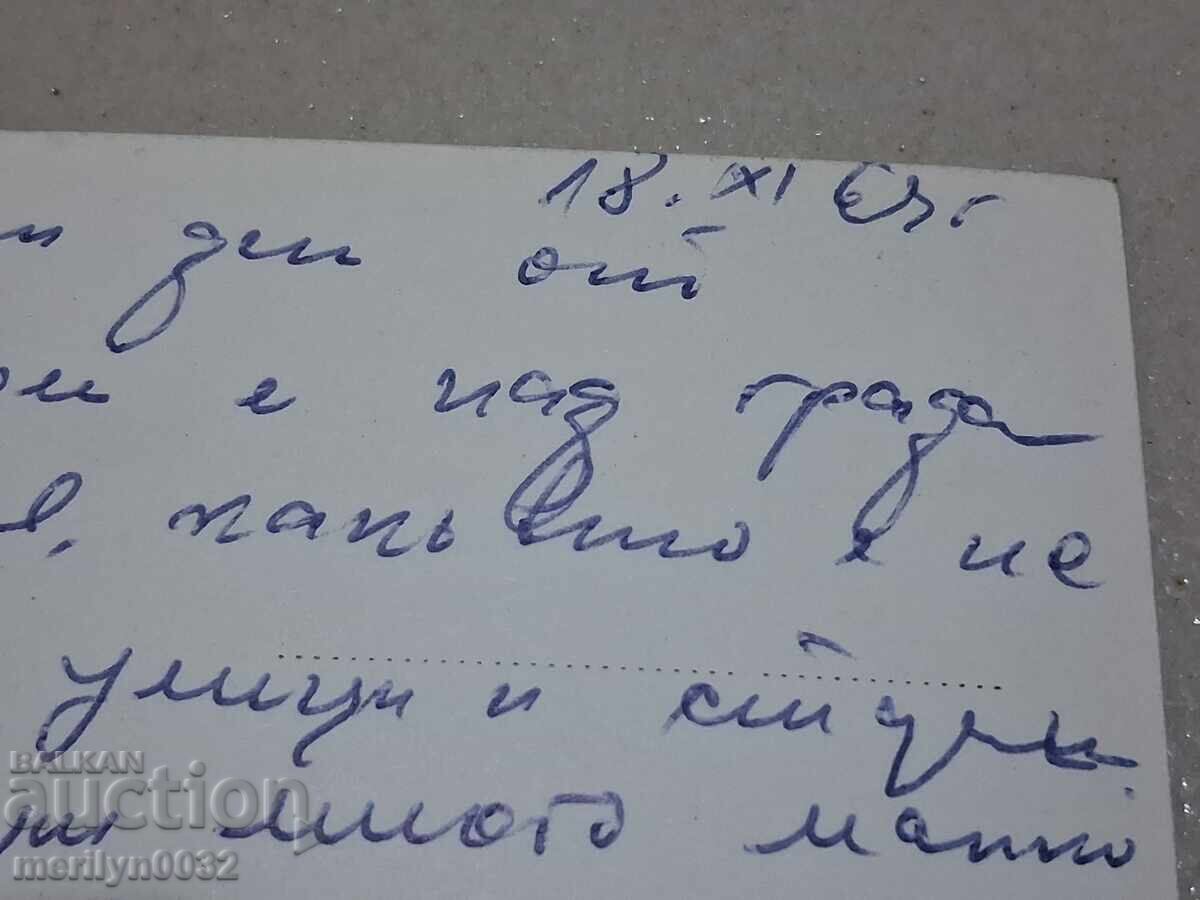 18. XI 63 г
ден от
е над града
в, какъвто е не
улици и студен
много малко
BALKAN
auction
merilyn0032